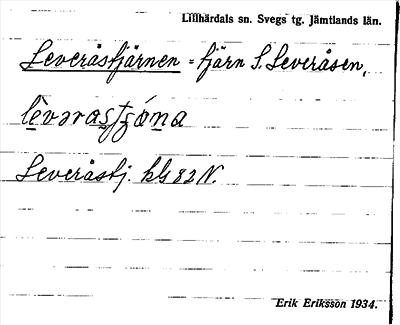 Lillhärdals sn. Svegs tg. Jämtlands län.
Leveråstjärnen = tjärn S. Leveråsen,
Leveråstj. kb 82 N.
Erik Eriksson 1934.